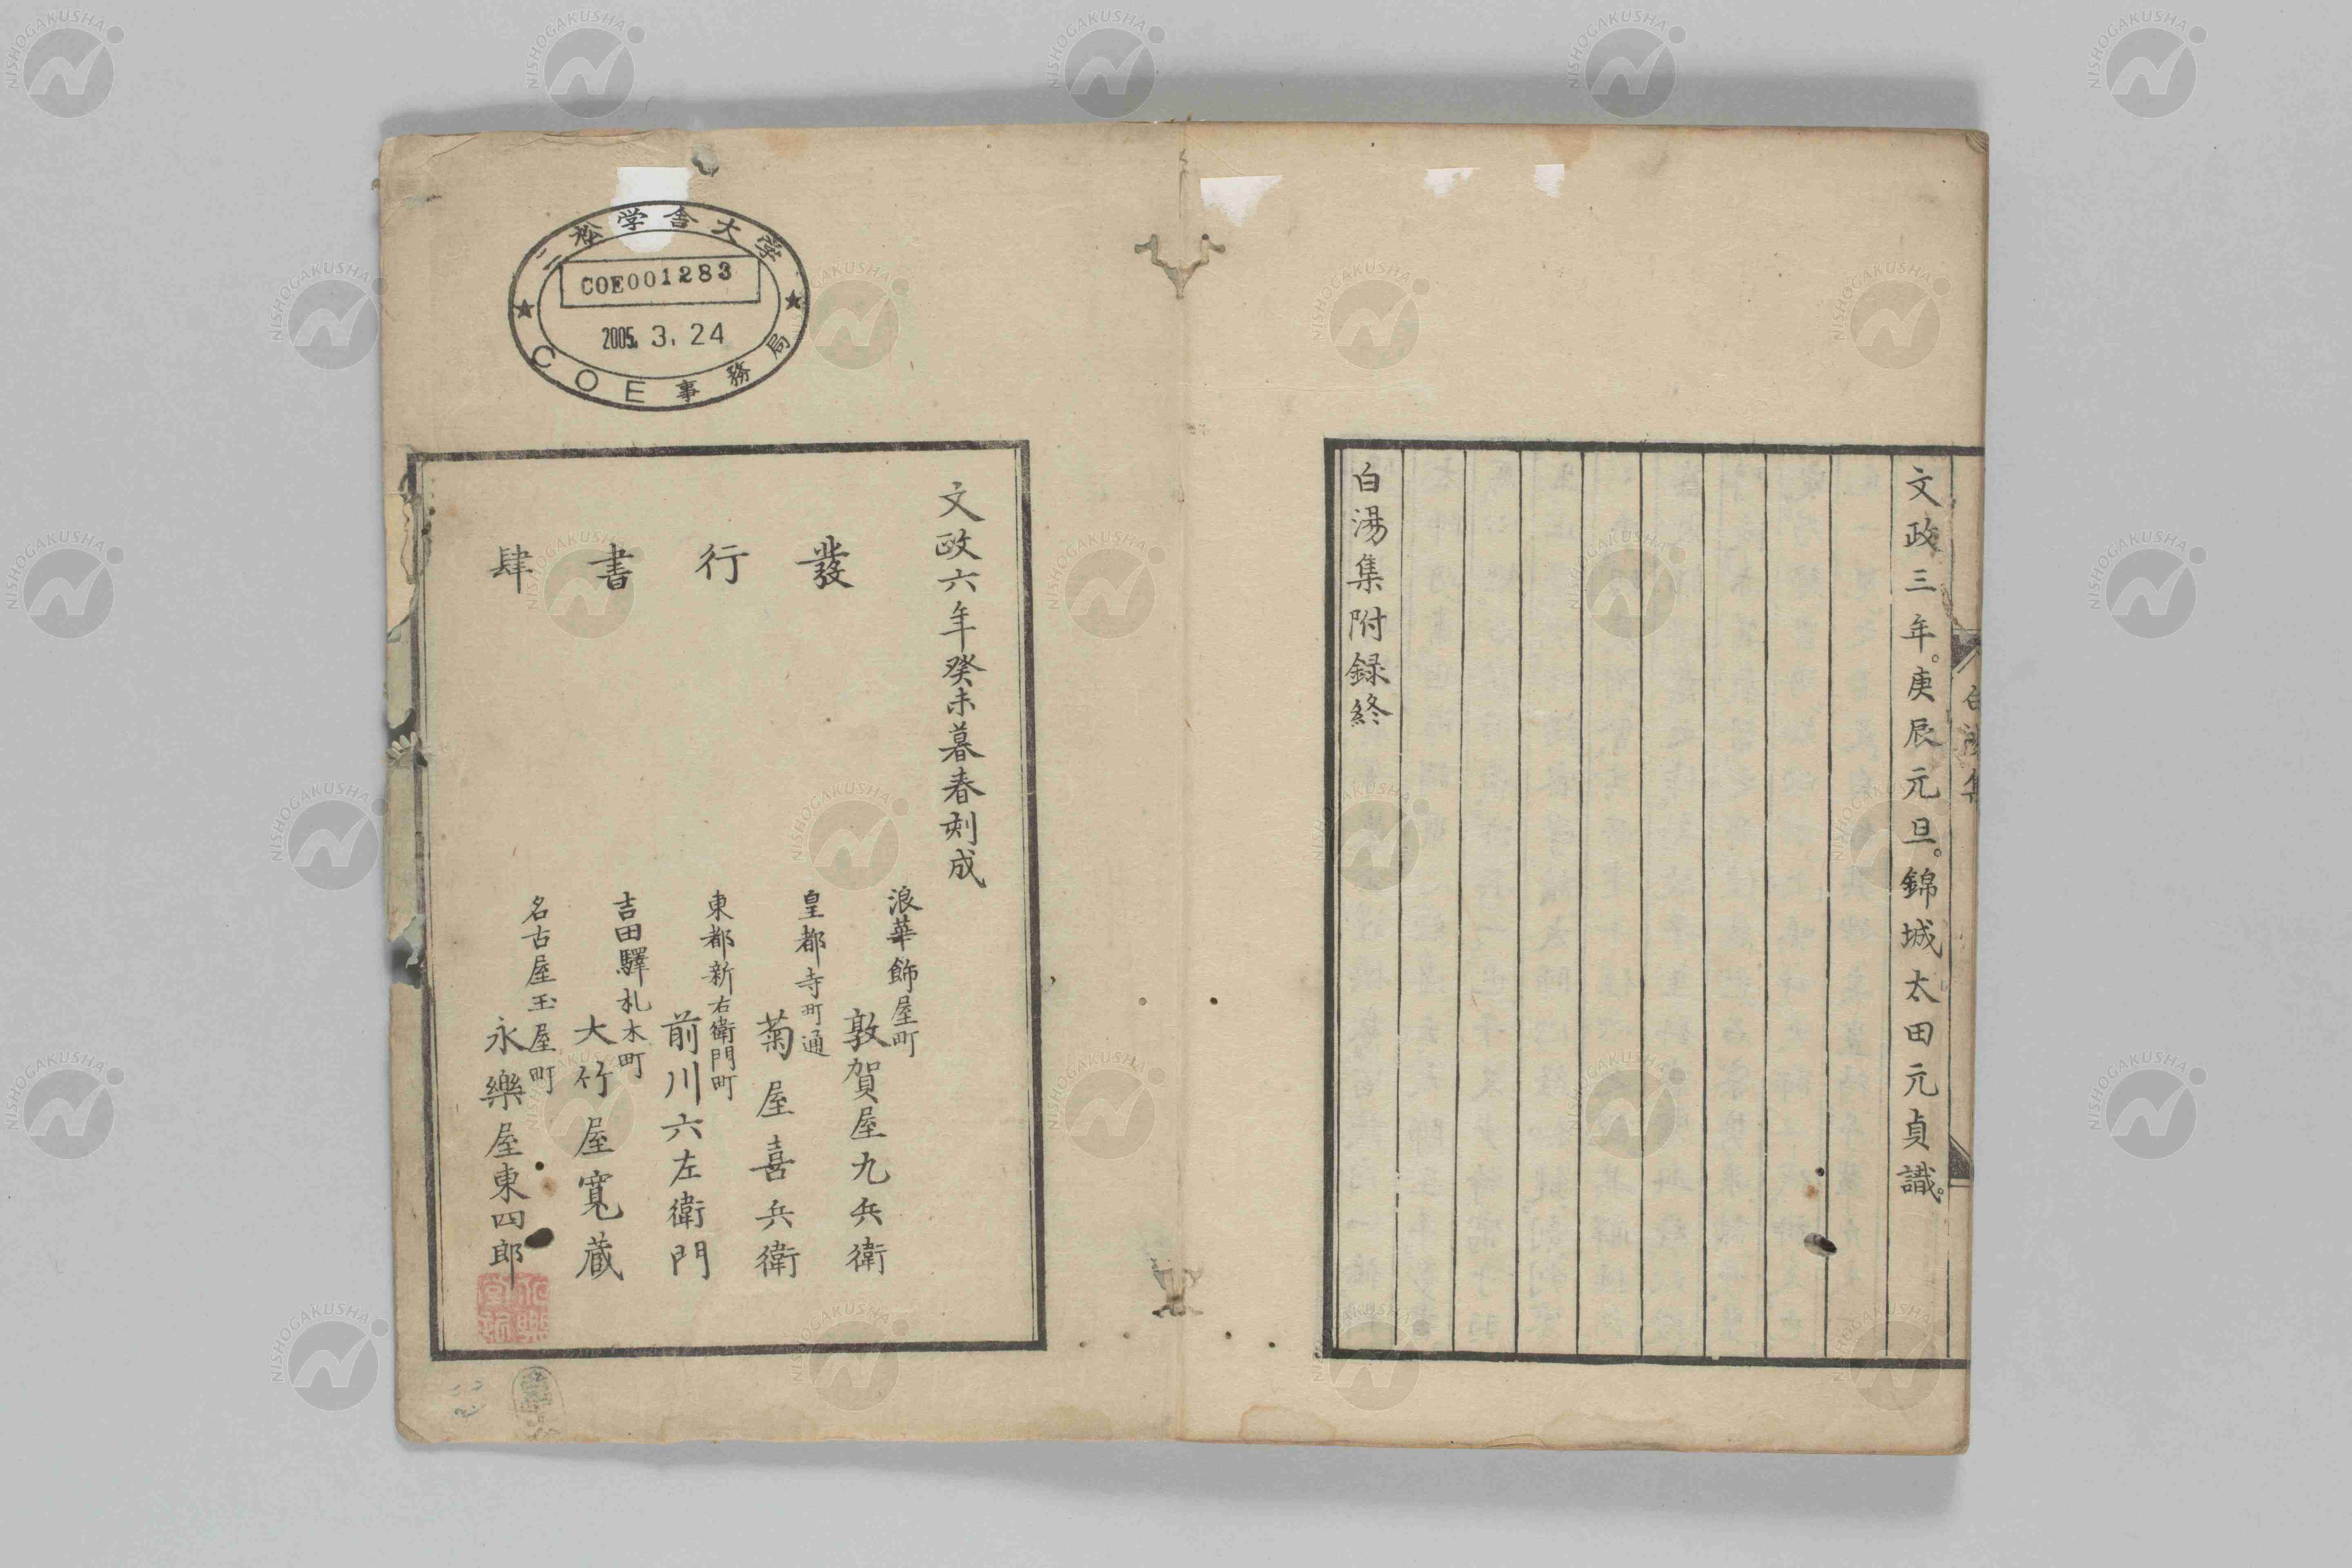 文政三年。庚辰元旦。錦城太田元貞識。
白湯集附録終
文政六年癸未暮春刻成
發行書肆
浪華飾屋町
敦賀屋九兵衛
皇都寺町通
菊屋喜兵衛
東都新右衛門町
前川六左衛門
吉田驛札木町
大竹屋寛蔵
名古屋玉屋町
永樂屋東四郎
二松学舎大学
COE001283
2005. 3. 24
COE事務局
NISHOGAKUSHA